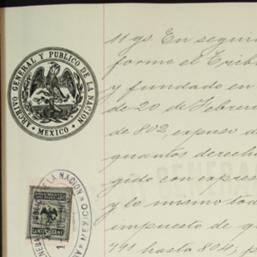 ARCHIVO GENERAL Y PUBLICO DE LA NACION
• MEXICO •
11 gs. En segui
forme el Trib
y fundado en
de 20 de Febrer
de 802, expuso d
quantos derecho
gido con expres
y lo mismo tod
impuesto de q
791 hasta 804, p
LA NACION
MEXICO